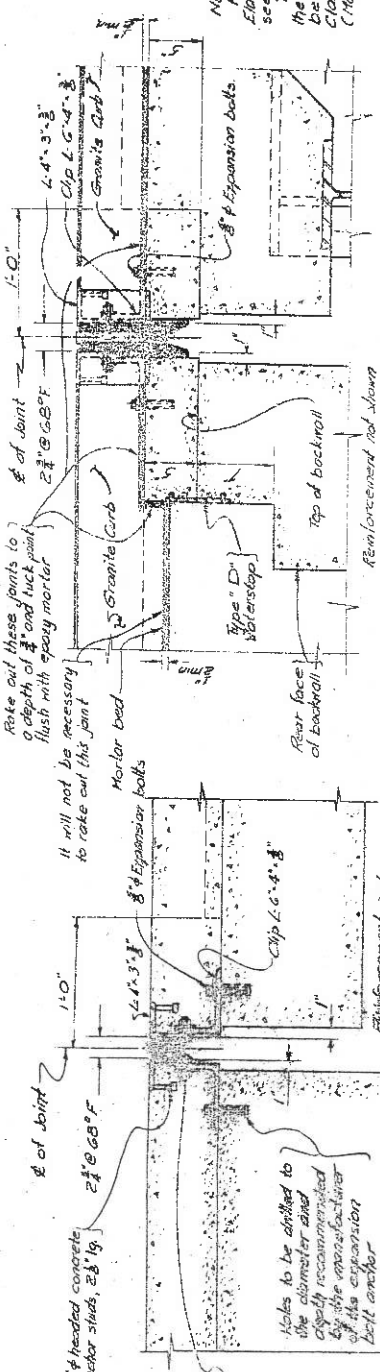 Rake out these joints to
a depth of ¾" and tuck point
flush with epoxy mortar
It will not be necessary
to rake out this joint
Mortar bed
Granite Curb
½" min
Type "D"
Waterstop
Rear face
of backwall
Top of backwall
Reinforcement not shown
℄ of Joint
2¾" @ 68°F
1'-0"
L-4"×3"×⅜"
Clip L-6"×4"×⅜"
Granite Curb
⅝" ϕ Expansion bolts
½" min
5"
5"
1"
1"
see
the
be
℄ of Joint
2¾" @ 68°F
1'-0"
ϕ headed concrete
studs, 2⅛" lg.
L-4"×3"×⅜"
⅝" ϕ Expansion bolts
Clip L-6"×4"×⅜"
1"
1"
Holes to be drilled to
the diameter and
depth recommended
by the manufacturer
of the expansion
bolt anchor